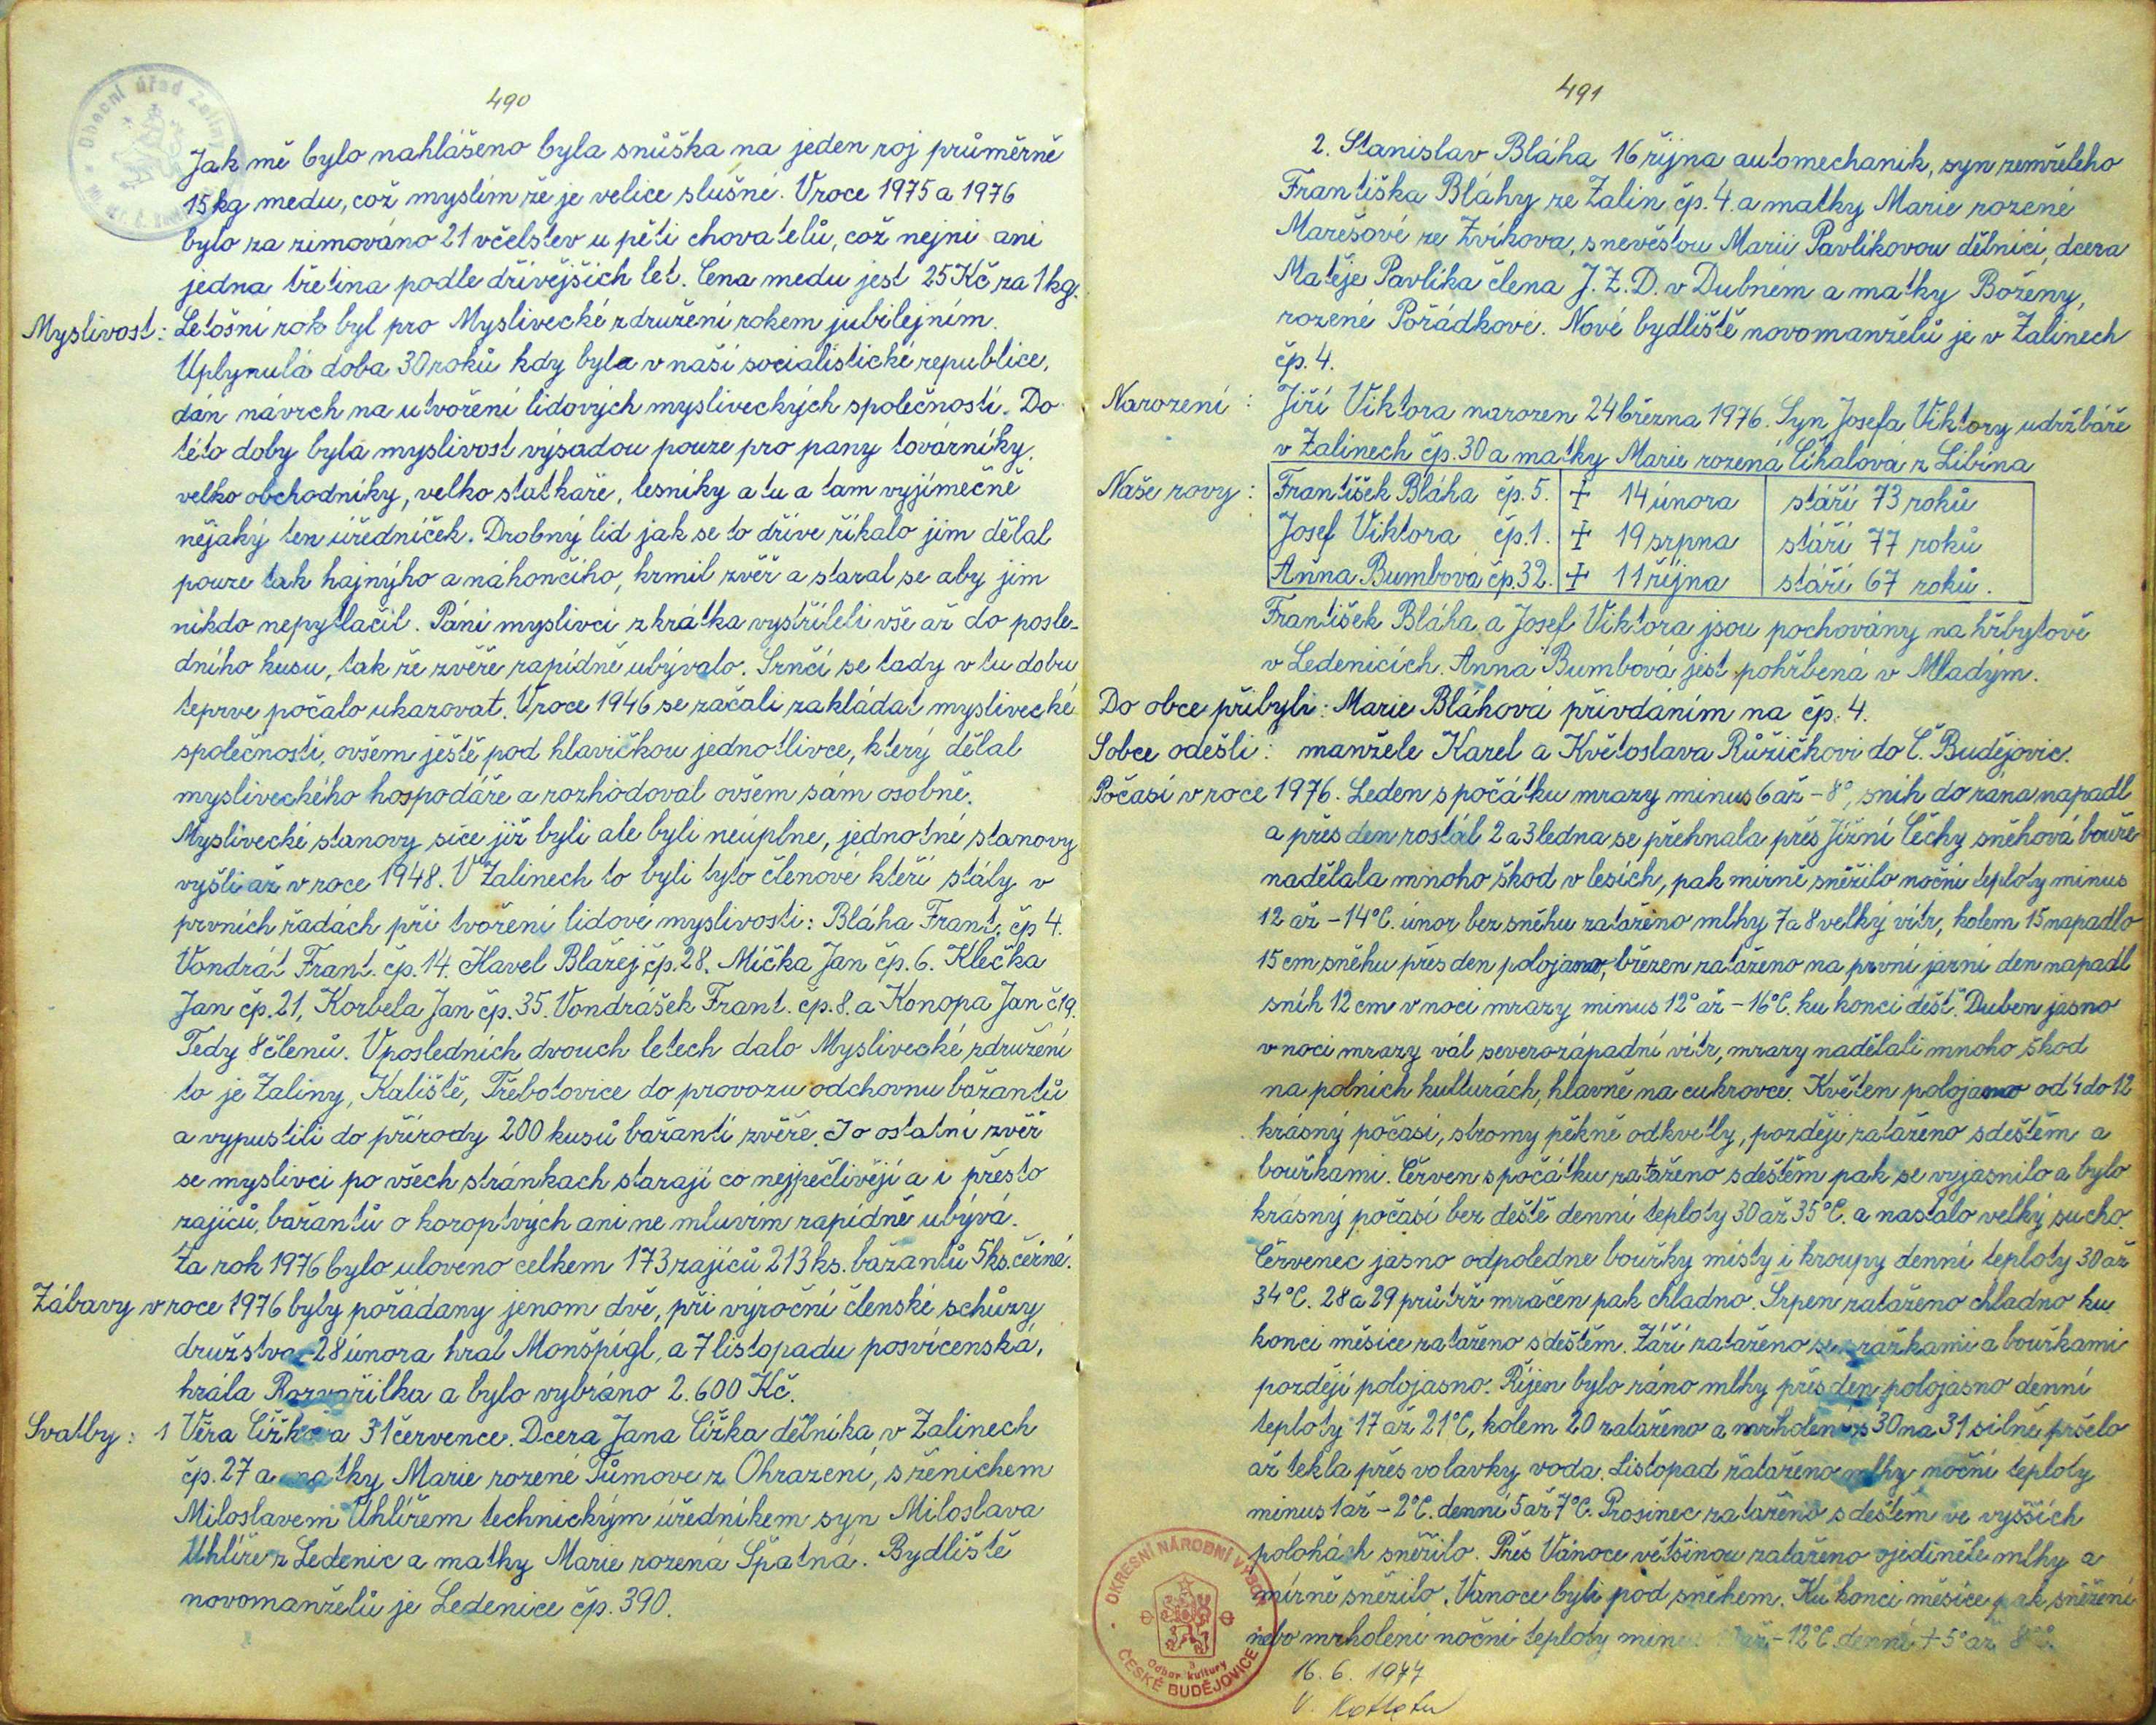 490
Jak mě bylo nahlášeno byla snůška na jeden roj průměrně
15 kg medu, což myslím že je velice slušné. V roce 1975 a 1976
bylo za zimováno 21 včelstev u pěti chovatelů, což nejni ani
jedna třetina podle dřívějších let. Cena medu jest 25 Kč za 1 kg.
Myslivost: Letošní rok byl pro Myslivecké združení rokem jubilejním.
Uplynulá doba 30 roků kdy byla v naší socialistické republice,
dán návrch na utvoření lidových mysliveckých společností. Do
této doby byla myslivost výsadou pouze pro pany továrníky,
velko obchodníky, velko statkaře, lesníky a tu a tam vyjímečně
nějaký ten úředníček. Drobný lid jak se to dříve říkalo jim dělal
pouze tak hajnýho a náhončího, krmil zvěř a staral se aby jim
nikdo nepytlačil. Páni myslivci zkrátka vystříleli vše až do posle-
dního kusu, tak že zvěře rapidně ubývalo. Srnčí se tady v tu dobu
teprve počalo ukazovat. V roce 1946 se začali zakládat myslivecké
společnosti, ovšem ještě pod hlavičkou jednotlivce, který dělal
mysliveckého hospodáře a rozhodoval ovšem sám osobně.
Myslivecké stanovy sice již byli ale byli neúplne, jednotné stanovy
vyšli až v roce 1948. V Zalinech to byli tyto členové kteří stály v
prvních řadách při tvoření lidové myslivosti: Bláha Frant. čp 4.
Vondrát Frant. čp. 14. Havel Blažej čp. 28. Míčka Jan čp. 6. Klečka
Jan čp. 21, Korbela Jan čp. 35. Vondrášek Frant. čp. 8. a Konopa Jan č 19.
Tedy 8 členů. V posledních dvouch letech dalo Myslivecké združení
to je Zaliny, Kaliště, Třebotovice do provozu odchovnu bažantů
a vypustili do přírody 200 kusů bažantí zvěře. I o ostatní zvěř
se myslivci po všech stránkach starají co nejpečlivěji a i přesto
zajíců, bažantů o koroptvých ani ne mluvím rapidně ubývá.
Za rok 1976 bylo uloveno celkem 173 zajíců 213 ks. bažantů 5 ks. černé.
Zábavy v roce 1976 byly pořádany jenom dvě, při výroční členské schůzy
družstva 28 února hral Monšpígl, a 7 listopadu posvícenská,
hrála Rozvařilka a bylo vybráno 2.600 Kč.
Svatby: 1 Věra Čížková 31 července. Dcera Jana Čížka dělníka v Zalinech
čp. 27 a matky Marie rozené Tůmove z Ohrazení, s ženichem
Miloslavem Uhlířem technickým úředníkem syn Miloslava
Uhlíře z Ledenic a matky Marie rozená Špatná. Bydliště
novomanželů je Ledenice čp. 390.
491
2. Stanislav Bláha 16 října automechanik, syn zemřelého
Františka Bláhy ze Zalin čp. 4. a matky Marie rozené
Marešové ze Zvíkova, s nevěstou Marií Pavlíkovou dělnicí, dcera
Matěje Pavlíka člena J.Z.D. v Dubném a matky Boženy,
rozené Pořádkové. Nové bydliště novomanželů je v Zalinech
čp. 4.
Narození: Jiří Viktora narozen 24 března 1976. Syn Josefa Viktory udržbáře
v Zalinech čp. 30 a matky Marie rozená Číhalová z Libína
Naše rovy: František Bláha čp. 5. ‡ 14 února stáří 73 roků
Josef Viktora čp. 1. ‡ 19 srpna stáří 77 roků
Anna Bumbová čp. 32. ‡ 11 října stáří 67 roků.
František Bláha a Josef Viktora jsou pochovány na hřbytově
v Ledenicích. Anna Bumbová jest pohřbená v Mladým.
Do obce přibyli: Marie Bláhová přivdáním na čp. 4.
S obce odešli: manžele Karel a Květoslava Růžičkovi do Č. Budějovic.
Počasí v roce 1976. Leden s počátku mrazy minus 6 až -8°, sníh do rána napadl
a přes den rostál 2 a 3 ledna se přehnala přes Jižní Čechy sněhová bouře
nadělala mnoho škod v lesích, pak mírně sněžilo noční teploty minus
12 až -14°C. únor bez sněhu zataženo mlhy 7 a 8 velký vítr, kolem 15 napadlo
15 cm sněhu přes den polojasno, březen zataženo na první jarní den napadl
sníh 12 cm v noci mrazy minus 12° až -16°C. ku konci déšť. Duben jasno
v noci mrazy vál severozápadní vítr, mrazy nadělali mnoho škod
na polních kulturách, hlavně na cukrovce. Květen polojasno od 4 do 12
krásný počasí, stromy pěkně odkvetly, později zataženo s deštěm a
bouřkami. Červen s počátku zataženo s deštěm pak se vyjasnilo a bylo
krásný počasí bez deště denní teploty 30 až 35°C. a nastálo velký sucho.
Červenec jasno odpoledne bouřky místy i kroupy denní teploty 30 až
34°C. 28 a 29 průtrž mračen pak chladno. Srpen zataženo chladno ku
konci měsíce zataženo s deštěm. Září zataženo se srážkami a bouřkami
později polojasno. Říjen bylo ráno mlhy přes den polojasno denní
teploty 17 až 21°C, kolem 20 zataženo a mrholení s 30 na 31 silně pršelo
až tekla přes volavky voda. Listopad zataženo mlhy noční teploty
minus 1 až -2°C. denní 5 až 7°C. Prosinec zataženo s deštěm ve vyšších
polohách sněžilo. Přes Vánoce většinou zataženo ojediněle mlhy a
mírně sněžilo. Vánoce byli pod sněhem. Ku konci měsíce pak sněžení
nebo mrholení noční teploty minus až -12°C denní +5° až 8°C.
16. 6. 1977
OKRESNÍ NÁRODNÍ VÝBOR
Odbor kultury
ČESKÉ BUDĚJOVICE
Obecní úřad Zaliny